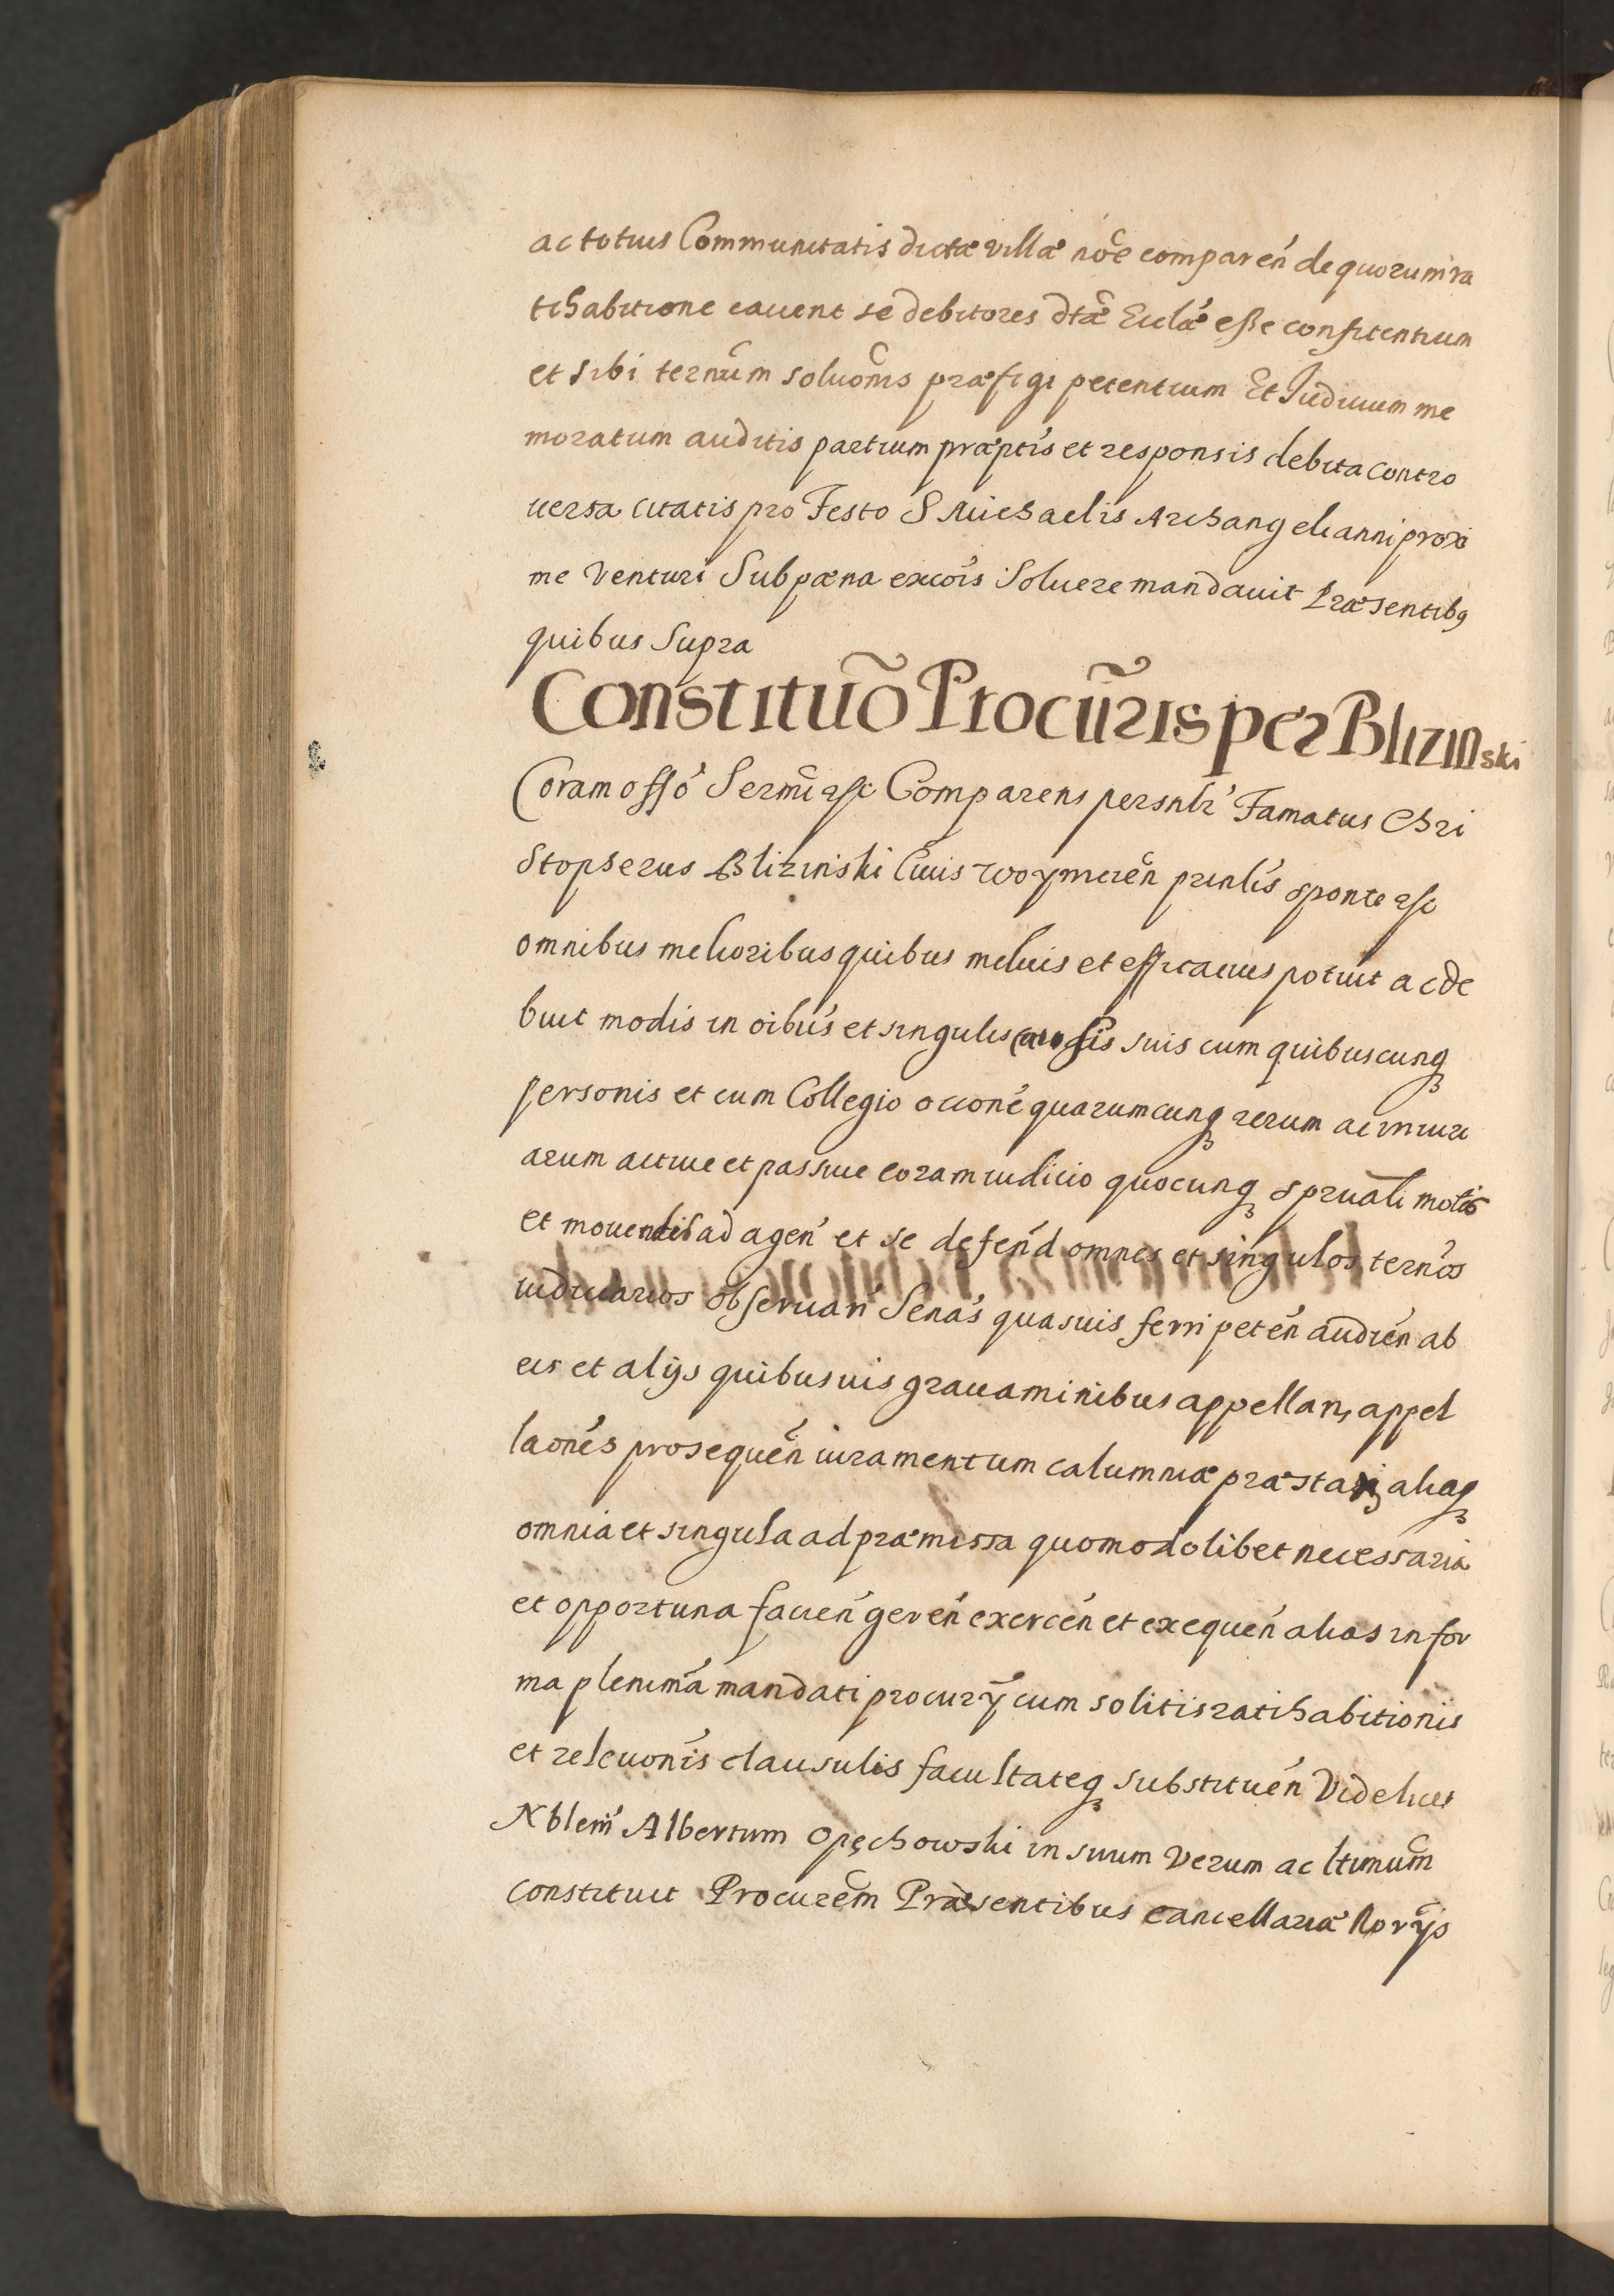 ac totius Communitatis dictæ villæ nõe comparen̄ de quorum ra
tihabitione cavent se debitores dtæ Ecclæ eße confitentium
et sibi ternum soluoms præfigi petentium Et Iudicium me
moratum auditis partium præptis et responsis debita contro
uersa citatis pro Festo S Michaelis Archangeli anni proxi
me Venturi Sub pæna excois Soluere mandauit Præsentibq
quibus Supra
Constituõ Procũris per Blizinski
Coram offo Sermi rsc Comparens persnlr Famatus Chri
Stopherus Blizinski Ciuis woymicen prinlis sponte rsc
omnibus melioribus quibus melius et efficacius potuit ac de
buit modis in oibus et singulis causis suis cum quibuscunq
personis et cum Collegio occone quarumcunq rerum ac iniuri
arum actiue et passiue coram iudicio quocunq spruali motis
et mouendis ad agen et se defend omnes et singulos ternos
iudiciarios obseruan Senas quasuis ferri peten audien ab
eis et alijs quibusuis grauaminibus appellan, appel
laones prosequen iuramentum calumniæ præstari, aliaq
omnia et singula ad præmissa quomodolibet necessaria
et opportuna facien geren exercen et exequen alias in for
ma plenima mandati procurÿ cum solitis ratihabitionis
et releuonis clausulis facultateq substituen Videlicet
Nblem Albertum Opęchowski in suum Verum ac ltimum
constituit Procurem Præsentibus cancellariæ Norÿs